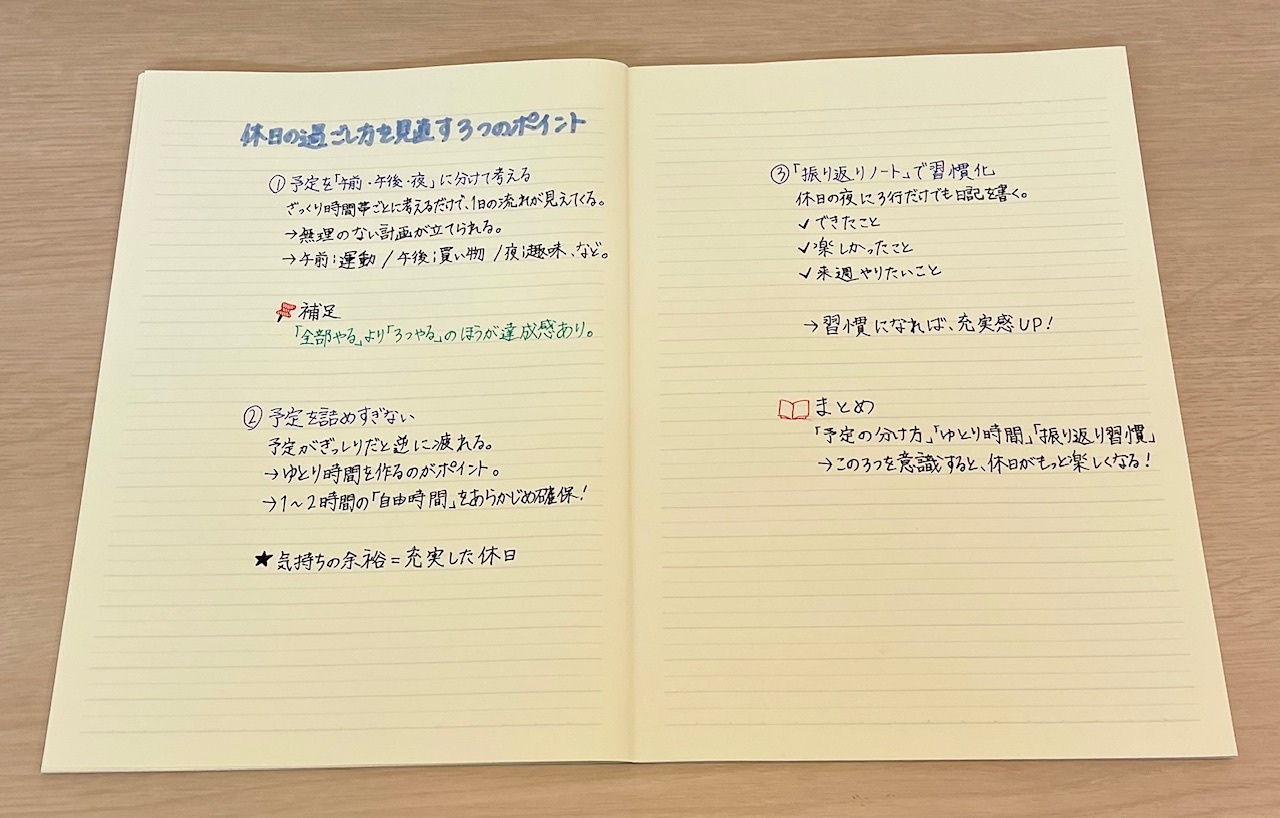 休日の過ごし方を見直す3つのポイント
①予定を「午前・午後・夜」に分けて考える
ざっくり時間帯ごとに考えるだけで、1日の流れが見えてくる。
→無理のない計画が立てられる。
→午前:運動/午後:買い物/夜:趣味、など。
補足
「全部やる」より「3つやる」のほうが達成感あり。
②予定を詰めすぎない
予定がぎっしりだと逆に疲れる。
→ゆとり時間を作るのがポイント。
→1〜2時間の「自由時間」をあらかじめ確保!
★気持ちの余裕=充実した休日
③「振り返りノート」で習慣化
休日の夜に3行だけでも日記を書く。
✓できたこと
✓楽しかったこと
✓来週やりたいこと
→習慣になれば、充実感UP!
まとめ
「予定の分け方」「ゆとり時間」「振り返り習慣」
→この3つを意識すると、休日がもっと楽しくなる!